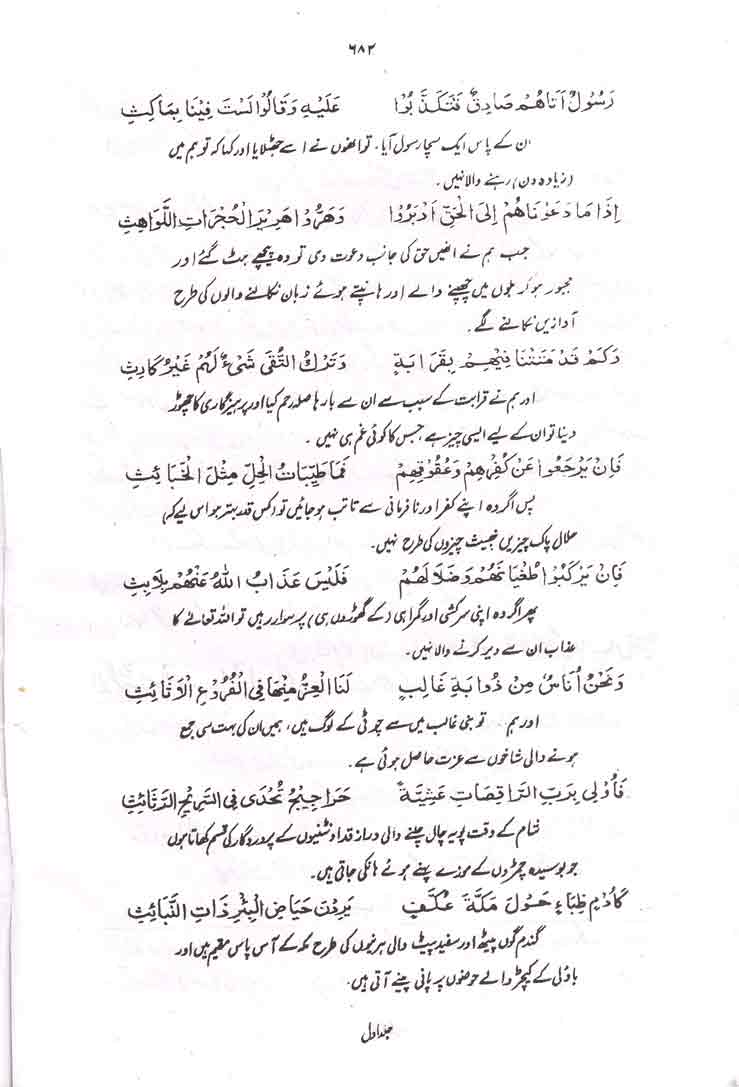 ۶۸۲
رَسُولٌ اَتَاهُمْ صَادِقٌ فَتَكَذَّبُوْا عَلَيْهِ وَقَالُوْا لَسْتَ فِيْنَا بِمَاكِثِ
ان کے پاس ایک سچا رسول آیا۔ تو انھوں نے اسے جھٹلایا اور کہا کہ تو ہم میں
(زیادہ دن) رہنے والا نہیں۔
اِذَا مَا دَعَوْنَاهُمْ اِلَى الْحَقِّ اَدْبَرُوْا وَهَرُّوْا هَرِيْرَ الْمُحْجَرَاتِ اللَّوَاهِثِ
جب ہم نے انھیں حق کی جانب دعوت دی تو وہ پیچھے ہٹ گئے اور
مجبور ہو کر بلوں میں چھپنے والے اور ہانپتے ہوئے زبان نکالنے والوں کی طرح
آوازیں نکالنے لگے۔
وَكَمْ قَدْ مَتَتْنَا فِيْهِمْ بِقَرَابَةٍ وَتَرْكُ التُّقَى شَيْءٌ لَهُمْ غَيْرُ كَارِثِ
اور ہم نے قرابت کے سبب سے ان سے بارہا صلہ رحم کیا اور پرہیزگاری کا چھوڑ
دینا تو ان کے لیے ایسی چیز ہے جس کا کوئی غم ہی نہیں۔
فَاِنْ يَرْجِعُوْا عَنْ كُفْرِهِمْ وَعُقُوْقِهِمْ فَمَا طَيِّبَاتُ الْحِلِّ مِثْلَ الْخَبَائِثِ
پس اگر وہ اپنے کفر اور نافرمانی سے تائب ہو جائیں تو (کس قدر بہتر ہو اس لیے کہ)
حلال پاک چیزیں خبیث چیزوں کی طرح نہیں۔
فَاِنْ يَرْكَبُوْا طُغْيَانَهُمْ وَضَلَالَهُمْ فَلَيْسَ عَذَابُ اللهُ عَنْهُمْ بِلَابِثِ
پھر اگر وہ اپنی سرکشی اور گمراہی (کے گھوڑوں ہی) پر سوار رہیں تو اللہ تعالےٰ کا
عذاب ان سے دیر کرنے والا نہیں۔
وَنَحْنُ اُنَاسٌ مِنْ ذُوَابَةِ غَالِبٍ لَنَا الْعِزُّ مِنْهَا فِي الْفُرُوْعِ الْاَثَائِثِ
اور ہم تو بنی غالب میں سے چوٹی کے لوگ ہیں، ہمیں ان کی بہت سی جمع
ہونے والی شاخوں سے عزت حاصل ہوئی ہے۔
فَاُوْلِي بِرَبِّ الرَّاقِصَاتِ عَشِيَّةً حَرَاجِيْجُ تُحْدَى فِي السَّرِيْحِ الرَّثَائِثِ
شام کے وقت پویہ چال چلنے والی دراز قد اونٹنیوں کے پروردگار کی قسم کھاتا ہوں
جو بوسیدہ چمڑوں کے موزے پہنے ہوئے ہانکی جاتی ہیں۔
كَاُدْمِ ظِبَاءٍ حَوْلَ مَكَّةَ عُكَّفٍ يَرِدْنَ حِيَاضَ الْبِئْرِ ذَاتِ النَّبَائِثِ
گندم گوں پیٹھ اور سفید پیٹ والی ہرنیوں کی طرح مکہ کے آس پاس مقیم ہیں اور
باؤلی کے کیچڑ والے حوضوں پر پانی پینے آتی ہیں۔
جلد اول